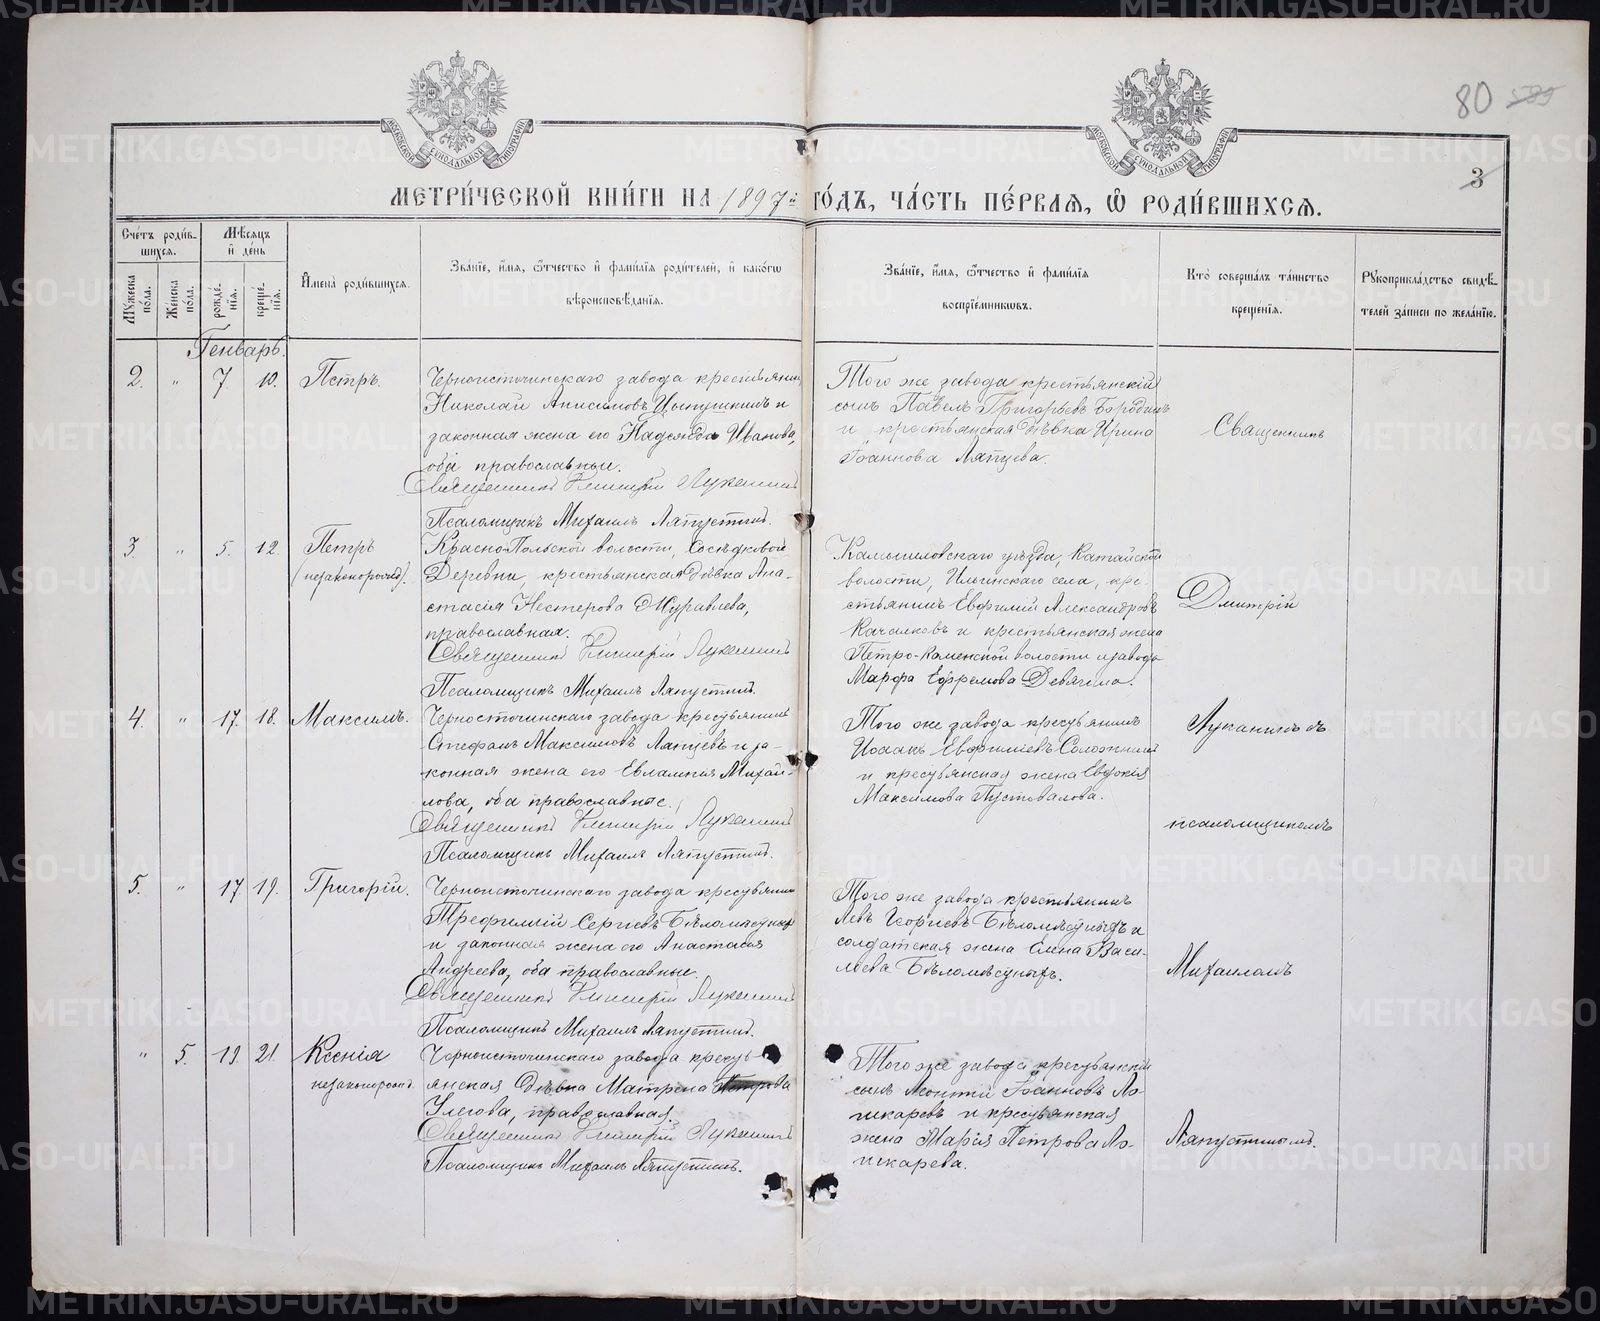 80 589
3
МОСКОВСКОЙ СѴНОДАЛЬНОЙ ТИПОГРАФІИ
МОСКОВСКОЙ СѴНОДАЛЬНОЙ ТИПОГРАФІИ
МЕТРИ́ЧЕСКОЙ КНИ́ГИ НА 1897й ГО́ДЪ, ЧА́СТЬ ПЕ́РВАѦ, Ѡ҆ РОДИ́ВШИХСѦ.
Сче́тъ роди́в-
шихсѧ.
Мѣ́сѧцъ
и҆ де́нь
Мꙋ́жеска
по́ла.
Же́нска
по́ла.
рожде́-
нїѧ.
креще́-
нїѧ.
И҆мена̀ роди́вшихсѧ.
Зва́нїе, и҆́мѧ, ѻ҆́тчество и҆ фами́лїѧ роди́телей, и҆ како́гѡ
вѣроисповѣ́данїѧ.
Зва́нїе, и҆́мѧ, ѻ҆́тчество и҆ фами́лїѧ
воспрїе́мникѡвъ.
Кто̀ соверша́лъ та́инство
креще́нїѧ.
Рꙋкоприкла́дство свидѣ́-
телей за́писи по жела́нїю.
Генварь.
2. " 7. 10. Петръ.
Черноисточинскаго завода крестьянинъ
Николай Анисимовъ Цыпушкинъ и
законная жена его Надежда Иванова,
оба православные.
Священникъ Димитрій Луканинъ
Псаломщикъ Михаилъ Ляпустинъ.
Того же завода крестьянскій
сынъ Павелъ Григорьевъ Бородинъ
и крестьянская дѣвка Ирина
Іоаннова Ляпцева.
Священникъ
3. " 5. 12. Петръ
(незаконорожд).
Красно-Польской волости, Сосѣдковой
Деревни, крестьянская дѣвка Ана-
стасія Нестерова Журавлева,
православная.
Священникъ Димитрій Луканинъ
Псаломщикъ Михаилъ Ляпустинъ.
Камышловскаго уѣзда, Катайской
волости, Ильинскаго села, кре-
стьянинъ Евфимій Александровъ
Качалковъ и крестьянская жена
Петро-Каменской волости и завода
Марфа Ефремова Девятина.
Дмитрій
4. " 17. 18. Максимъ.
Черноисточинскаго завода крестьянинъ
Стефанъ Максимовъ Ляпцевъ и за-
конная жена его Евлампія Михай-
лова, оба православные.
Священникъ Димитрій Луканинъ
Псаломщикъ Михаилъ Ляпустинъ.
Того же завода крестьянинъ
Исаакъ Евфиміевъ Соложнинъ
и крестьянская жена Евдокія
Максимова Пустовалова.
Луканинъ съ
псаломщикомъ
5. " 17 19. Григорій.
Черноисточинскаго завода крестьянинъ
Трефилій Сергіевъ Бѣломѣстныхъ
и законная жена его Анастасія
Андреева, оба православные.
Священникъ Димитрій Луканинъ
Псаломщикъ Михаилъ Ляпустинъ.
Того же завода крестьянинъ
Левъ Георгіевъ Бѣломѣстныхъ и
солдатская жена Елена Васи-
льева Бѣломѣстныхъ.
Михаиломъ
" 5. 19. 21. Ксенія
незаконорожд.
Черноисточинскаго завода кресть-
янская дѣвка Матрена Петрова
Улегова, православная.
Священникъ Димитрій Луканинъ
Псаломщикъ Михаилъ Ляпустинъ.
Того же завода крестьянскій
сынъ Леонтій Іоанновъ Ло-
шкаревъ и крестьянская
жена Марія Петрова Ло-
шкарева.
Ляпустинымъ.